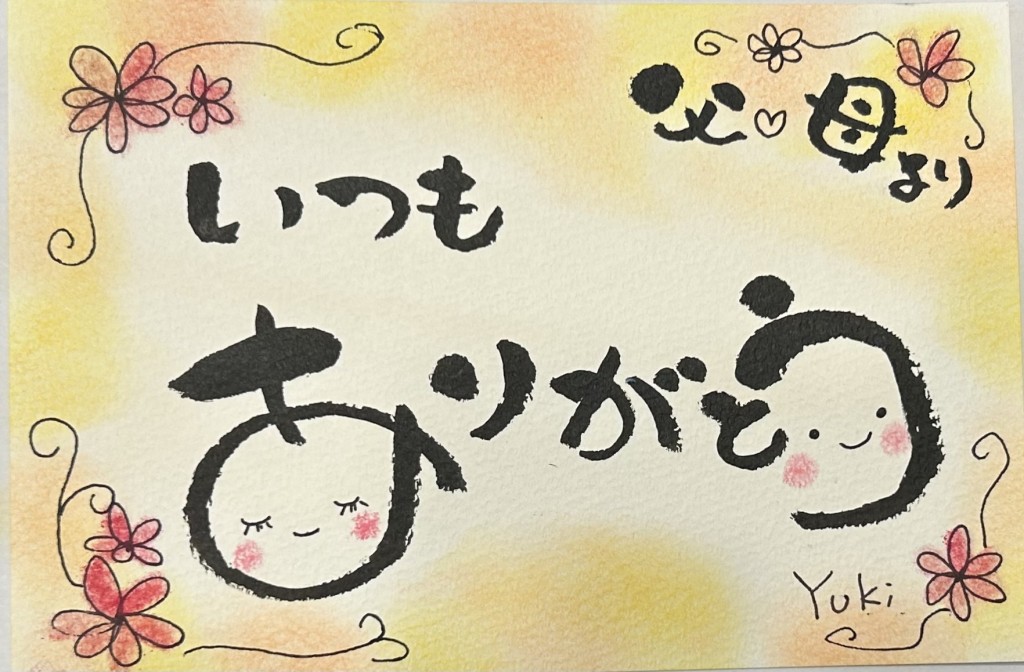 父♡母より
いつも
ありがとう
Yuki